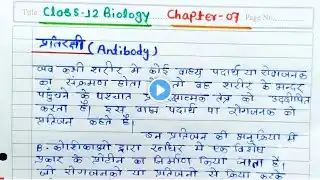 Title Class-12 Biology Chapter-07 Page No.
प्रतिरक्षी (Antibody)
जब कभी शरीर में कोई वाह्य पदार्थ या रोगजनक
का संक्रमण होता है तो वह शरीर के अन्दर
पहुंचने के पश्चात् तंत्र को उद्दीपित
करता है। इस वाह्य पदार्थ या रोगजनक को
प्रतिजन कहते है।
इन प्रतिजन की अनुक्रिया में
B-कोशिकाओं द्वारा रूधिर में एक विशेष
प्रकार के प्रोटीन का निर्माण किया जाता है।
जो रोगजनकों या प्रतिजनों से क्रिया करके